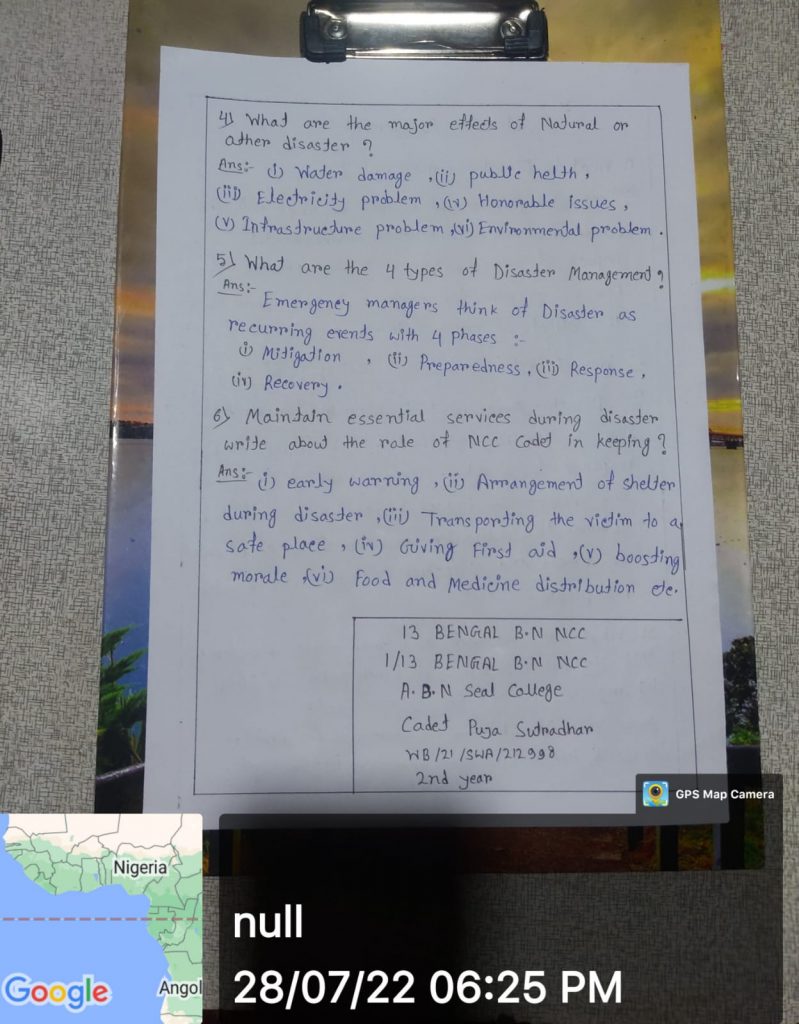 4) What are the major effects of Natural or
other disaster ?
Ans:- (i) Water damage , (ii) public helth ,
(iii) Electricity problem , (iv) Honorable issues ,
(v) Infrastructure problem , (vi) Environmental problem .
5) What are the 4 types of Disaster Management ?
Ans:-
Emergency managers think of Disaster as
recurring events with 4 phases :-
(i) Mitigation , (ii) Preparedness , (iii) Response ,
(iv) Recovery .
6) Maintain essential services during disaster
write about the role of NCC Cadet in keeping ?
Ans:- (i) early warning , (ii) Arrangement of shelter
during disaster , (iii) Transporting the victim to a
safe place , (iv) Giving First aid , (v) boosting
morale , (vi) Food and Medicine distribution etc.
13 BENGAL B.N NCC
1/13 BENGAL B.N NCC
A.B.N Seal College
Cadet Puja Sutradhar
WB/21/SWA/212998
2nd year
GPS Map Camera
Nigeria
Angol
Google
null
28/07/22 06:25 PM